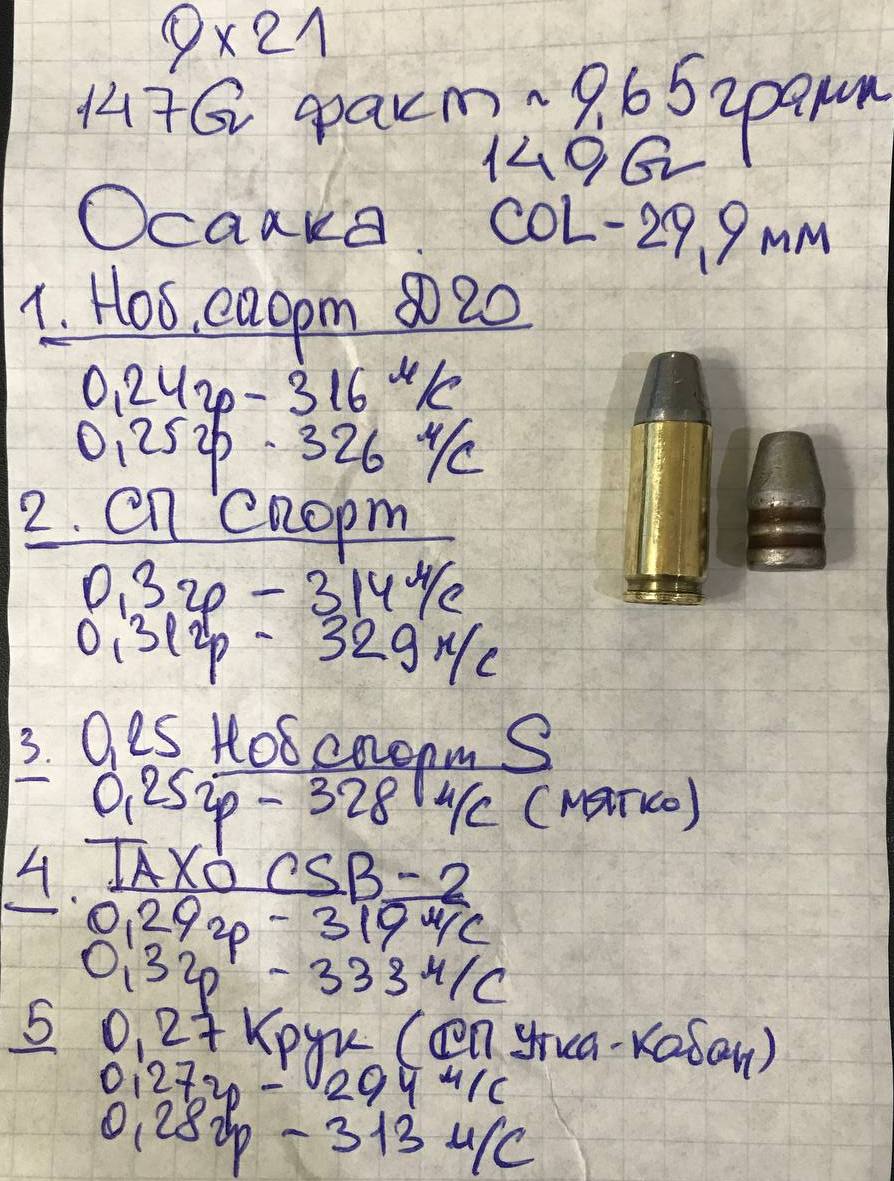 9х21
147Gr факт ~ 9,65 грамм
149Gr
Осалка. COL-29,9мм
1. Ноб.спорт Д20
0,24гр - 316 м/с
0,25гр - 326 м/с
2. СП Спорт
0,3гр - 314м/с
0,31гр - 329м/с
3. 0,25 Ноб спорт S
0,25гр - 328 м/с (мягко)
4. ТАХО CSB-2
0,29гр - 319м/с
0,3гр - 333м/с
5 0,27 Крук (СП Утка-кабан)
0,27гр - 294 м/с
0,28гр - 313 м/с